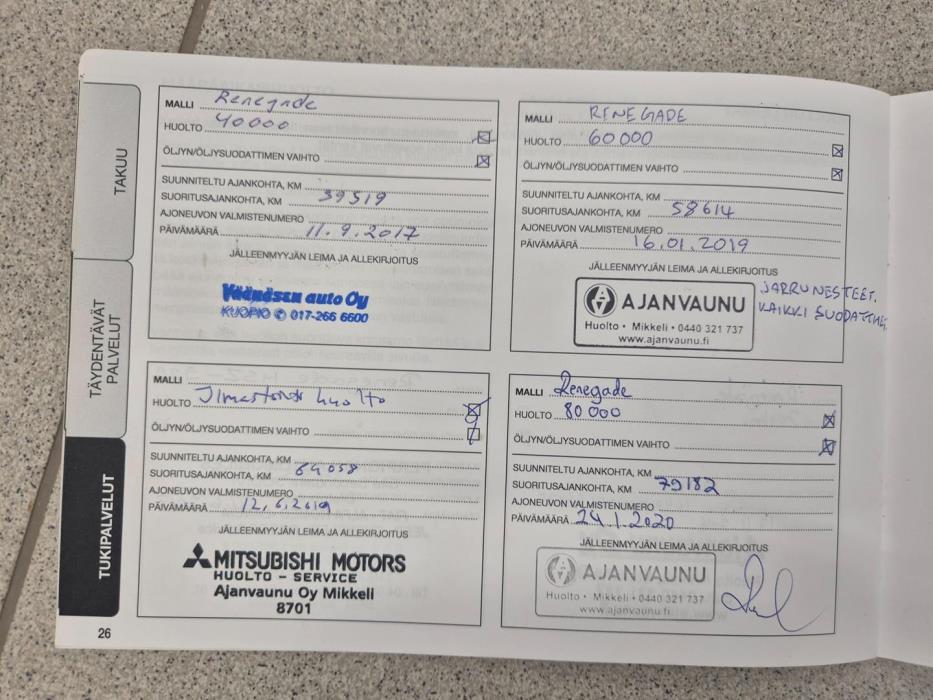 TAKUU
TÄYDENTÄVÄT
PALVELUT
TUKIPALVELUT
26
MALLI Renegade
HUOLTO 40000
ÖLJYN/ÖLJYSUODATTIMEN VAIHTO
SUUNNITELTU AJANKOHTA, KM
SUORITUSAJANKOHTA, KM 39519
AJONEUVON VALMISTENUMERO
PÄIVÄMÄÄRÄ 11.9.2017
JÄLLEENMYYJÄN LEIMA JA ALLEKIRJOITUS
Väänäsen auto Oy
KUOPIO ✆ 017-266 6600
MALLI RENEGADE
HUOLTO 60 000
ÖLJYN/ÖLJYSUODATTIMEN VAIHTO
SUUNNITELTU AJANKOHTA, KM
SUORITUSAJANKOHTA, KM 58614
AJONEUVON VALMISTENUMERO
PÄIVÄMÄÄRÄ 16.01.2019
JÄLLEENMYYJÄN LEIMA JA ALLEKIRJOITUS
AJANVAUNU
Huolto • Mikkeli • 0440 321 737
www.ajanvaunu.fi
JARRUNESTEET.
KAIKKI
MALLI
HUOLTO Ilmastoinnin huolto
ÖLJYN/ÖLJYSUODATTIMEN VAIHTO
SUUNNITELTU AJANKOHTA, KM
SUORITUSAJANKOHTA, KM 64058
AJONEUVON VALMISTENUMERO
PÄIVÄMÄÄRÄ 12.6.2019
JÄLLEENMYYJÄN LEIMA JA ALLEKIRJOITUS
MITSUBISHI MOTORS
HUOLTO – SERVICE
Ajanvaunu Oy Mikkeli
8701
MALLI Renegade
HUOLTO 80 000
ÖLJYN/ÖLJYSUODATTIMEN VAIHTO
SUUNNITELTU AJANKOHTA, KM
SUORITUSAJANKOHTA, KM 79182
AJONEUVON VALMISTENUMERO
PÄIVÄMÄÄRÄ 24.1.2020
JÄLLEENMYYJÄN LEIMA JA ALLEKIRJOITUS
AJANVAUNU
Huolto • Mikkeli • 0440 321 737
www.ajanvaunu.fi